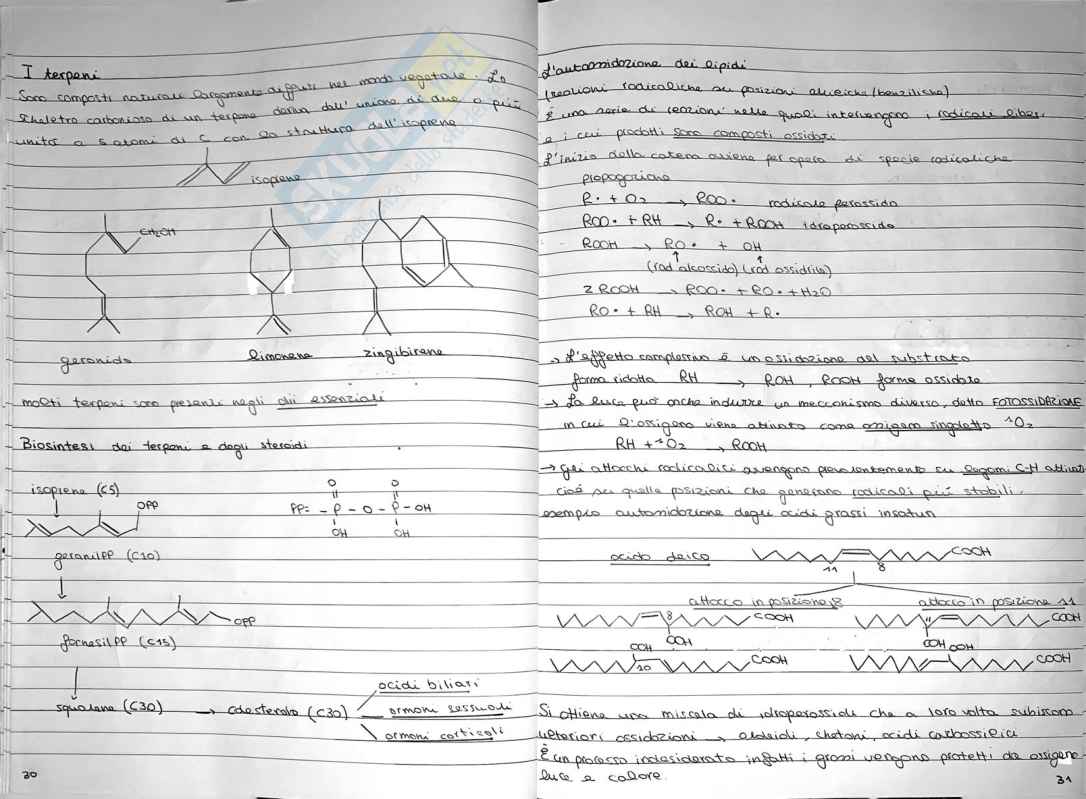 I terpeni
Sono composti naturali largamente diffusi nel mondo vegetale. Lo
scheletro carbonioso di un terpene deriva dall'unione di due o più
unità a 5 atomi di C con la struttura dell'isoprene
isoprene
CH2OH
geraniolo
limonene
zingibirene
molti terpeni sono presenti negli olii essenziali
Biosintesi dei terpeni e degli steroidi
isoprene (C5)
OPP
PP= - P - O - P - OH
O O
OH OH
geranilPP (C10)
OPP
farnesilPP (C15)
squalene (C30) → colesterolo (C30)
acidi biliari
ormoni sessuali
ormoni corticoli
30
L'autossidazione dei lipidi
(reazioni radicaliche su posizioni alliliche/benziliche)
È una serie di reazioni nelle quali intervengono i radicali liberi
e i cui prodotti sono composti ossidati
L'inizio della catena avviene per opera di specie radicaliche
propagazione
R• + O2 → ROO• radicale perossido
ROO• + RH → R• + ROOH idroperossido
ROOH → RO• + OH
(rad alcossido) (rad ossidrile)
2 ROOH → ROO• + RO• + H2O
RO• + RH → ROH + R•
→ L'effetto complessivo è un ossidazione del substrato
forma ridotta RH → ROH, ROOH forme ossidate
→ La luce può anche indurre un meccanismo diverso, detto FOTOSSIDAZIONE
in cui l'ossigeno viene attivato come ossigeno singoletto ¹O2
RH + ¹O2 → ROOH
→ Gli attacchi radicalici avvengono prevalentemente su legami C-H attivati
cioè su quelle posizioni che generano radicali più stabili.
esempio autossidazione degli acidi grassi insaturi
acido oleico
COOH
11 8
attacco in posizione 8
attacco in posizione 11
8 COOH
OOH
11 COOH
OOH
OOH
10 COOH
OOH
COOH
Si ottiene una miscela di idroperossidi che a loro volta subiscono
ulteriori ossidazioni → aldeidi, chetoni, acidi carbossilici
È un processo indesiderato infatti i grassi vengono protetti da ossigeno
luce e calore.
31